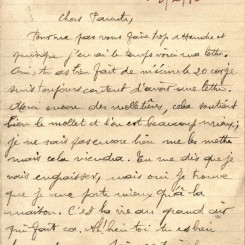 Chers Parents,
Pour ne pas vous faire trop attendre et
quoique j'ai le temps voici ma lettre.
Oui, tu as bien fait de m'écrire le 20 car je
suis toujours content d'avoir une lettre.
Merci encore des molletières, cela soutient
bien le mollet et l'on est beaucoup mieux;
je ne sais pas encore bien me les mettre
mais cela viendra. Tu me dis que je
vais engraisser, mais oui je trouve
que je me porte mieux qu'à la
maison. C'est la vie au grand air
qui fait ça. Ah bien toi tu es bien